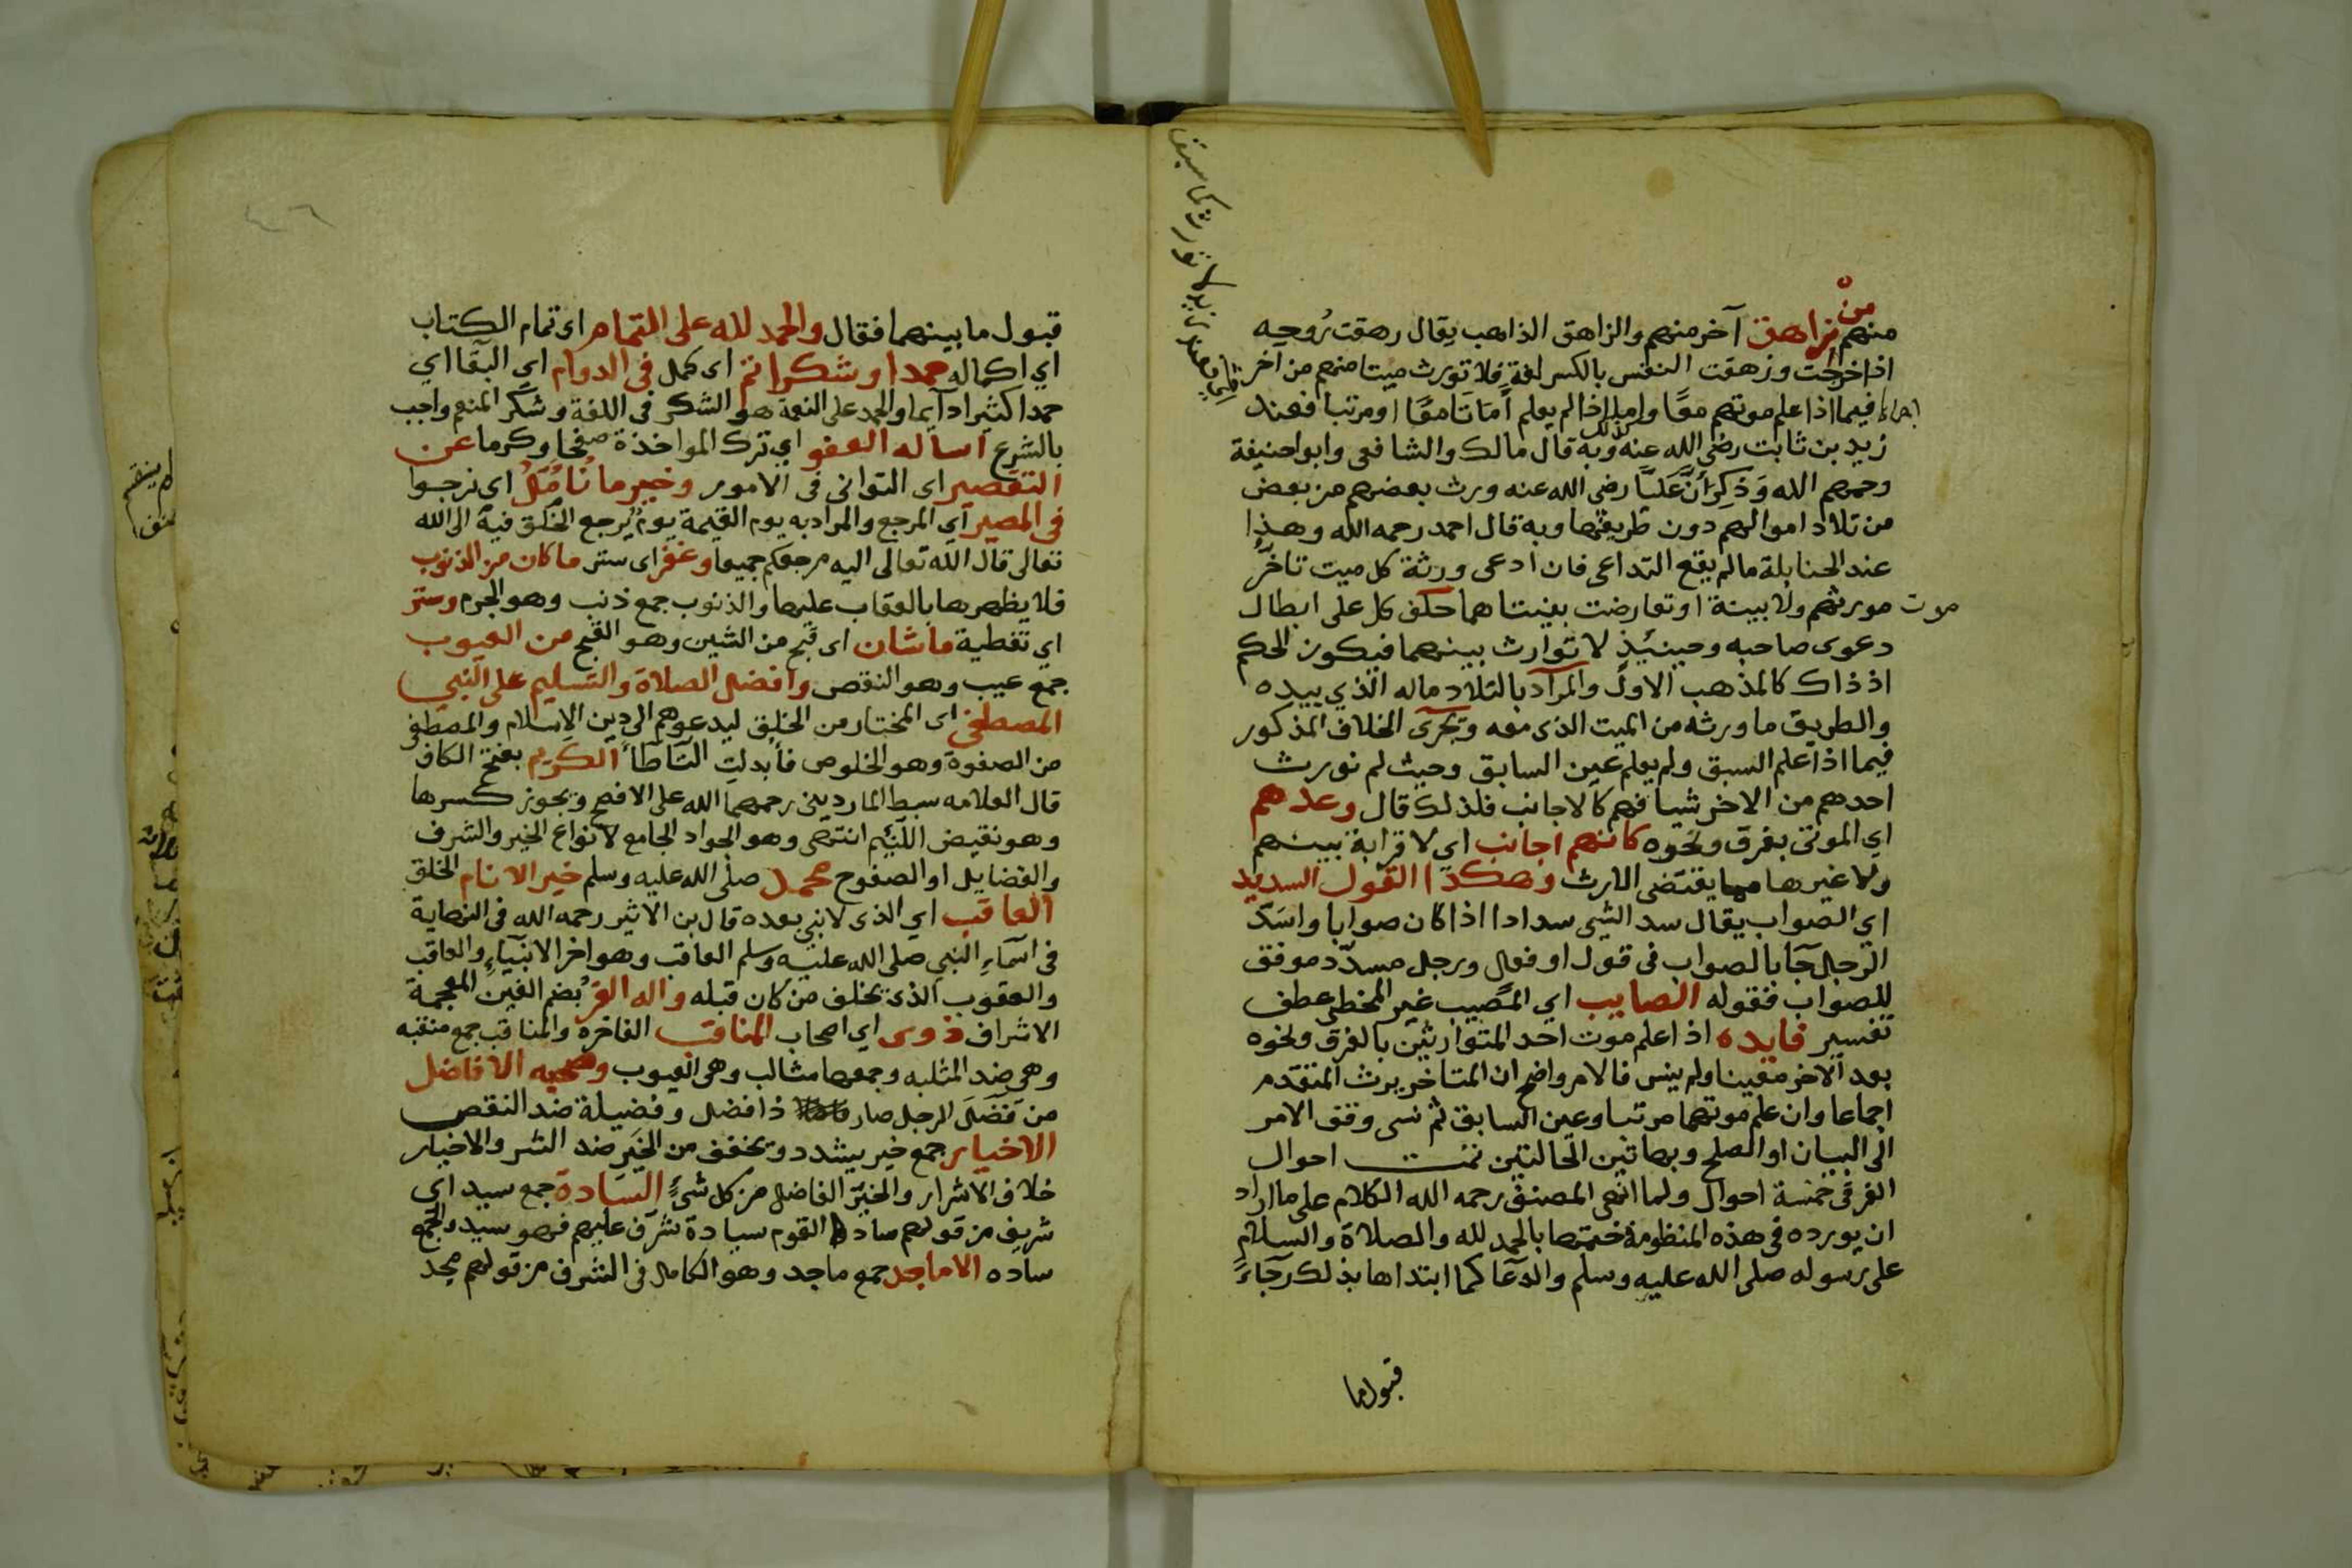 من
منهم زاهق آخر منهم والزاهق الذاهب يقال زهقت رُوحه
اذا خرجت وزهقت النفس بالكسر لغة فلا تورث ميتا منهم من اخر
اجماعا فيما اذا علم موتهم معًا واما اذا لم يعلم أماتا معًا او مرتبا فعند
زيد بن ثابت رضي الله عنه كذلك وبه قال مالك والشافعي وابو احنيفة
رحمهم الله وَذكِرَ أنَّ عَليًّا رضى الله عنه ورث بعضهم من بعض
من تلاد اموالهم دون طريقها وبه قال احمد رحمه الله وهذا
عند الحنابلة ما لم يقع التداعى فان ادعى ورثة كل ميت تاخر
موت مورثهم ولا بينة او تعارضت بينتاهما حلف كل على ابطال
دعوى صاحبه وحينئذٍ لا توارث بينهما فيكون الحكم
اذ ذاك كالمذهب الاول والمراد بالتلاد ماله الذي بيده
والطريق ما ورثه من الميت الذى معه وتجرى الخلاف المذكور
فيما اذا علم السبق ولم يعلم عين السابق وحيث لم نورث
احدهم من الاخر شيا فهم كالاجانب فلذلك قال وعدهم
اي الموتى بغرق ونحوه كانهم اجانب اي لا قرابة بينهم
ولا غيرها مما يقتضى الارث وهكذا القول السديد
اي الصواب يقال سد الشي سدادا اذا كان صوابا واسَدّ
الرجل جَا بالصواب فى قول او فعل ورجل مسدّد موفق
للصواب فقوله الصايب اي المصيب غير المخطى عطف
تفسير فايده اذا علم موت احد المتوارثين بالغرق ونحوه
بعد الاخر معينا ولم ينس فالامر واضح ان المتاخر يرث المتقدم
اجماعا وان علم موتهما مرتبا وعين السابق ثم نسى وقف الامر
الى البيان او الصلح وبهاتين الحالتين تمت احوال
الغرقى خمسة احوال ولما انهى المصنف رحمه الله الكلام على ما اراد
ان يورده فى هذه المنظومة ختمها بالحمد لله والصلاة والسلام
على رسوله صلى الله عليه وسلم والدعا كما ابتداها بذلك رجاءً
قبول ما
قبول ما بينهما فقال والحمد لله على التمام اى تمام الكتاب
اي اكماله حمدا وشكرا تم اى كمل فى الدوام اي البقا اي
حمدا كثيرا دآيما والحمد على النعمة هو الشكر فى اللغة وشكر المنعم واجب
بالشرع اساله العفو اي ترك المواخذة صفحا وكرما عن
التقصير اى التوانى فى الامور وخير ما نأمل اى نرجوا
فى المصير اي المرجع والمراد به يوم القيمة يوم يرجع الخلق فيه الى الله
تعالى قال الله تعالى اليه مرجعكم جميعا وغفر اى ستر ما كان من الذنوب
فلا يظهرها بالعقاب عليها والذنوب جمع ذنب وهو الجرم وستر
اي تغطية ما شان اى قبح من الشين وهو القبح من العيوب
جمع عيب وهو النقص وافضل الصلاة والتسليم على النبي
المصطفى اى المختار من الخلق ليدعوهم الى دين الاسلام والمصطفى
من الصفوة وهو الخلوص فأبدلت التا طاً الكريم بفتح الكاف
قال العلامه سبط الماردينى رحمهما الله على الافصح ويجوز كسرها
وهو نقيض اللّئيم انتهى وهو الجواد الجامع لانواع الخير والشرف
والفضايل او الصفوح محمد صلى الله عليه وسلم خير الانام الخلق
العاقب اي الذى لا نبي بعده قال بن الاثير رحمه الله فى النهاية
فى اسماء النبي صلى الله عليه وسلم العاقب وهو اخر الانبياءِ والعاقب
والعقوب الذى يخلف من كان قبله واله الغرُ بضم الغين المعجمة
الاشراف ذوى اي اصحاب المناقب الفاخرة والمناقب جمع منقبه
وهى ضد المثلبه وجمعها مثالب وهى العيوب وصحبه الافاضل
من فَضَل الرجل صار ذا فضل وفضيلة ضد النقص
الاخيار جمع خير بيشدد ويخفف من الخَير ضد الشر والاخيار
خلاف الاشرار والخيّر الفاضل من كل شئٍ السادة جمع سيد اى
شريف من قولهم ساد القوم سيادة شرف عليهم فهو سيد والجمع
ساده الاماجد جمع ماجد وهو الكامل فى الشرف من قولهم مجد